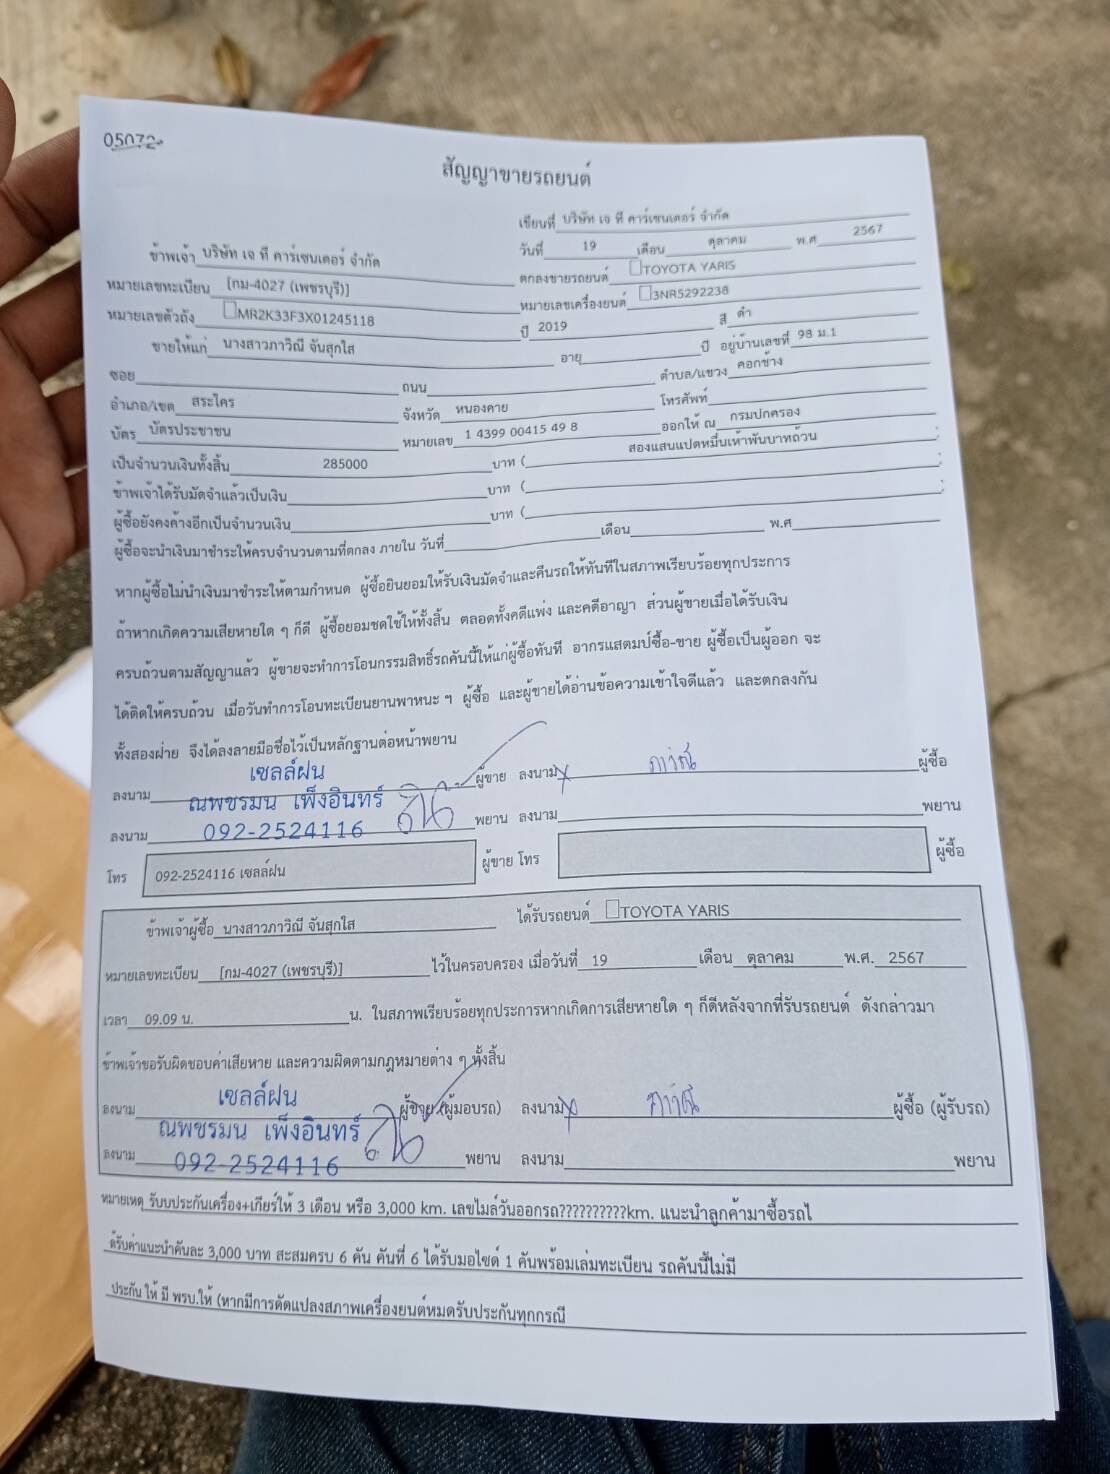 05072
สัญญาขายรถยนต์
เขียนที่ บริษัท เจ ที คาร์เซนเตอร์ จำกัด
วันที่ 19 เดือน ตุลาคม พ.ศ 2567
ข้าพเจ้า บริษัท เจ ที คาร์เซนเตอร์ จำกัด ตกลงขายรถยนต์ TOYOTA YARIS
หมายเลขทะเบียน [กม-4027 (เพชรบุรี)] หมายเลขเครื่องยนต์ 3NR5292238
หมายเลขตัวถัง MR2K33F3X01245118 ปี 2019 สี ดำ
ขายให้แก่ นางสาวภาวิณี จันสุกใส อายุ ปี อยู่บ้านเลขที่ 98 ม.1
ซอย ถนน ตำบล/แขวง คอกช้าง
อำเภอ/เขต สระใคร จังหวัด หนองคาย โทรศัพท์
บัตร บัตรประชาชน หมายเลข 1 4399 00415 49 8 ออกให้ ณ กรมปกครอง
เป็นจำนวนเงินทั้งสิ้น 285000 บาท ( สองแสนแปดหมื่นเห้าพันบาทถ้วน )
ข้าพเจ้าได้รับมัดจำแล้วเป็นเงิน บาท ( )
ผู้ซื้อยังคงค้างอีกเป็นจำนวนเงิน บาท ( )
ผู้ซื้อจะนำเงินมาชำระให้ครบจำนวนตามที่ตกลง ภายใน วันที่ เดือน พ.ศ
หากผู้ซื้อไม่นำเงินมาชำระให้ตามกำหนด ผู้ซื้อยินยอมให้รับเงินมัดจำและคืนรถให้ทันทีในสภาพเรียบร้อยทุกประการ
ถ้าหากเกิดความเสียหายใด ๆ ก็ดี ผู้ซื้อยอมชดใช้ให้ทั้งสิ้น ตลอดทั้งคดีแพ่ง และคดีอาญา ส่วนผู้ขายเมื่อได้รับเงิน
ครบถ้วนตามสัญญาแล้ว ผู้ขายจะทำการโอนกรรมสิทธิ์รถคันนี้ให้แก่ผู้ซื้อทันที อากรแสตมป์ซื้อ-ขาย ผู้ซื้อเป็นผู้ออก จะ
ได้ติดให้ครบถ้วน เมื่อวันทำการโอนทะเบียนยานพาหนะ ฯ ผู้ซื้อ และผู้ขายได้อ่านข้อความเข้าใจดีแล้ว และตกลงกัน
ทั้งสองฝ่าย จึงได้ลงลายมือชื่อไว้เป็นหลักฐานต่อหน้าพยาน
ลงนาม เซลล์ฝน ผู้ขาย ลงนาม ภาวิณี ผู้ซื้อ
ณพชรมน เพ็งอินทร์
ลงนาม 092-2524116 พยาน ลงนาม พยาน
โทร 092-2524116 เซลล์ฝน ผู้ขาย โทร ผู้ซื้อ
ข้าพเจ้าผู้ซื้อ นางสาวภาวิณี จันสุกใส ได้รับรถยนต์ TOYOTA YARIS
หมายเลขทะเบียน [กม-4027 (เพชรบุรี)] ไว้ในครอบครอง เมื่อวันที่ 19 เดือน ตุลาคม พ.ศ. 2567
เวลา 09.09 น. น. ในสภาพเรียบร้อยทุกประการหากเกิดการเสียหายใด ๆ ก็ดีหลังจากที่รับรถยนต์ ดังกล่าวมา
ข้าพเจ้าขอรับผิดชอบค่าเสียหาย และความผิดตามกฎหมายต่าง ๆ ทั้งสิ้น
ลงนาม เซลล์ฝน ผู้ขาย (ผู้มอบรถ) ลงนาม ภาวิณี ผู้ซื้อ (ผู้รับรถ)
ณพชรมน เพ็งอินทร์
ลงนาม 092-2524116 พยาน ลงนาม พยาน
หมายเหตุ รับบประกันเครื่อง+เกียร์ให้ 3 เดือน หรือ 3,000 km. เลขไมล์วันออกรถ??????????km. แนะนำลูกค้ามาซื้อรถไ
ด้รับค่าแนะนำคันละ 3,000 บาท สะสมครบ 6 คัน คันที่ 6 ได้รับมอไซด์ 1 คันพร้อมเล่มทะเบียน รถคันนี้ไม่มี
ประกัน ให้ มี พรบ.ให้ (หากมีการดัดแปลงสภาพเครื่องยนต์หมดรับประกันทุกกรณี